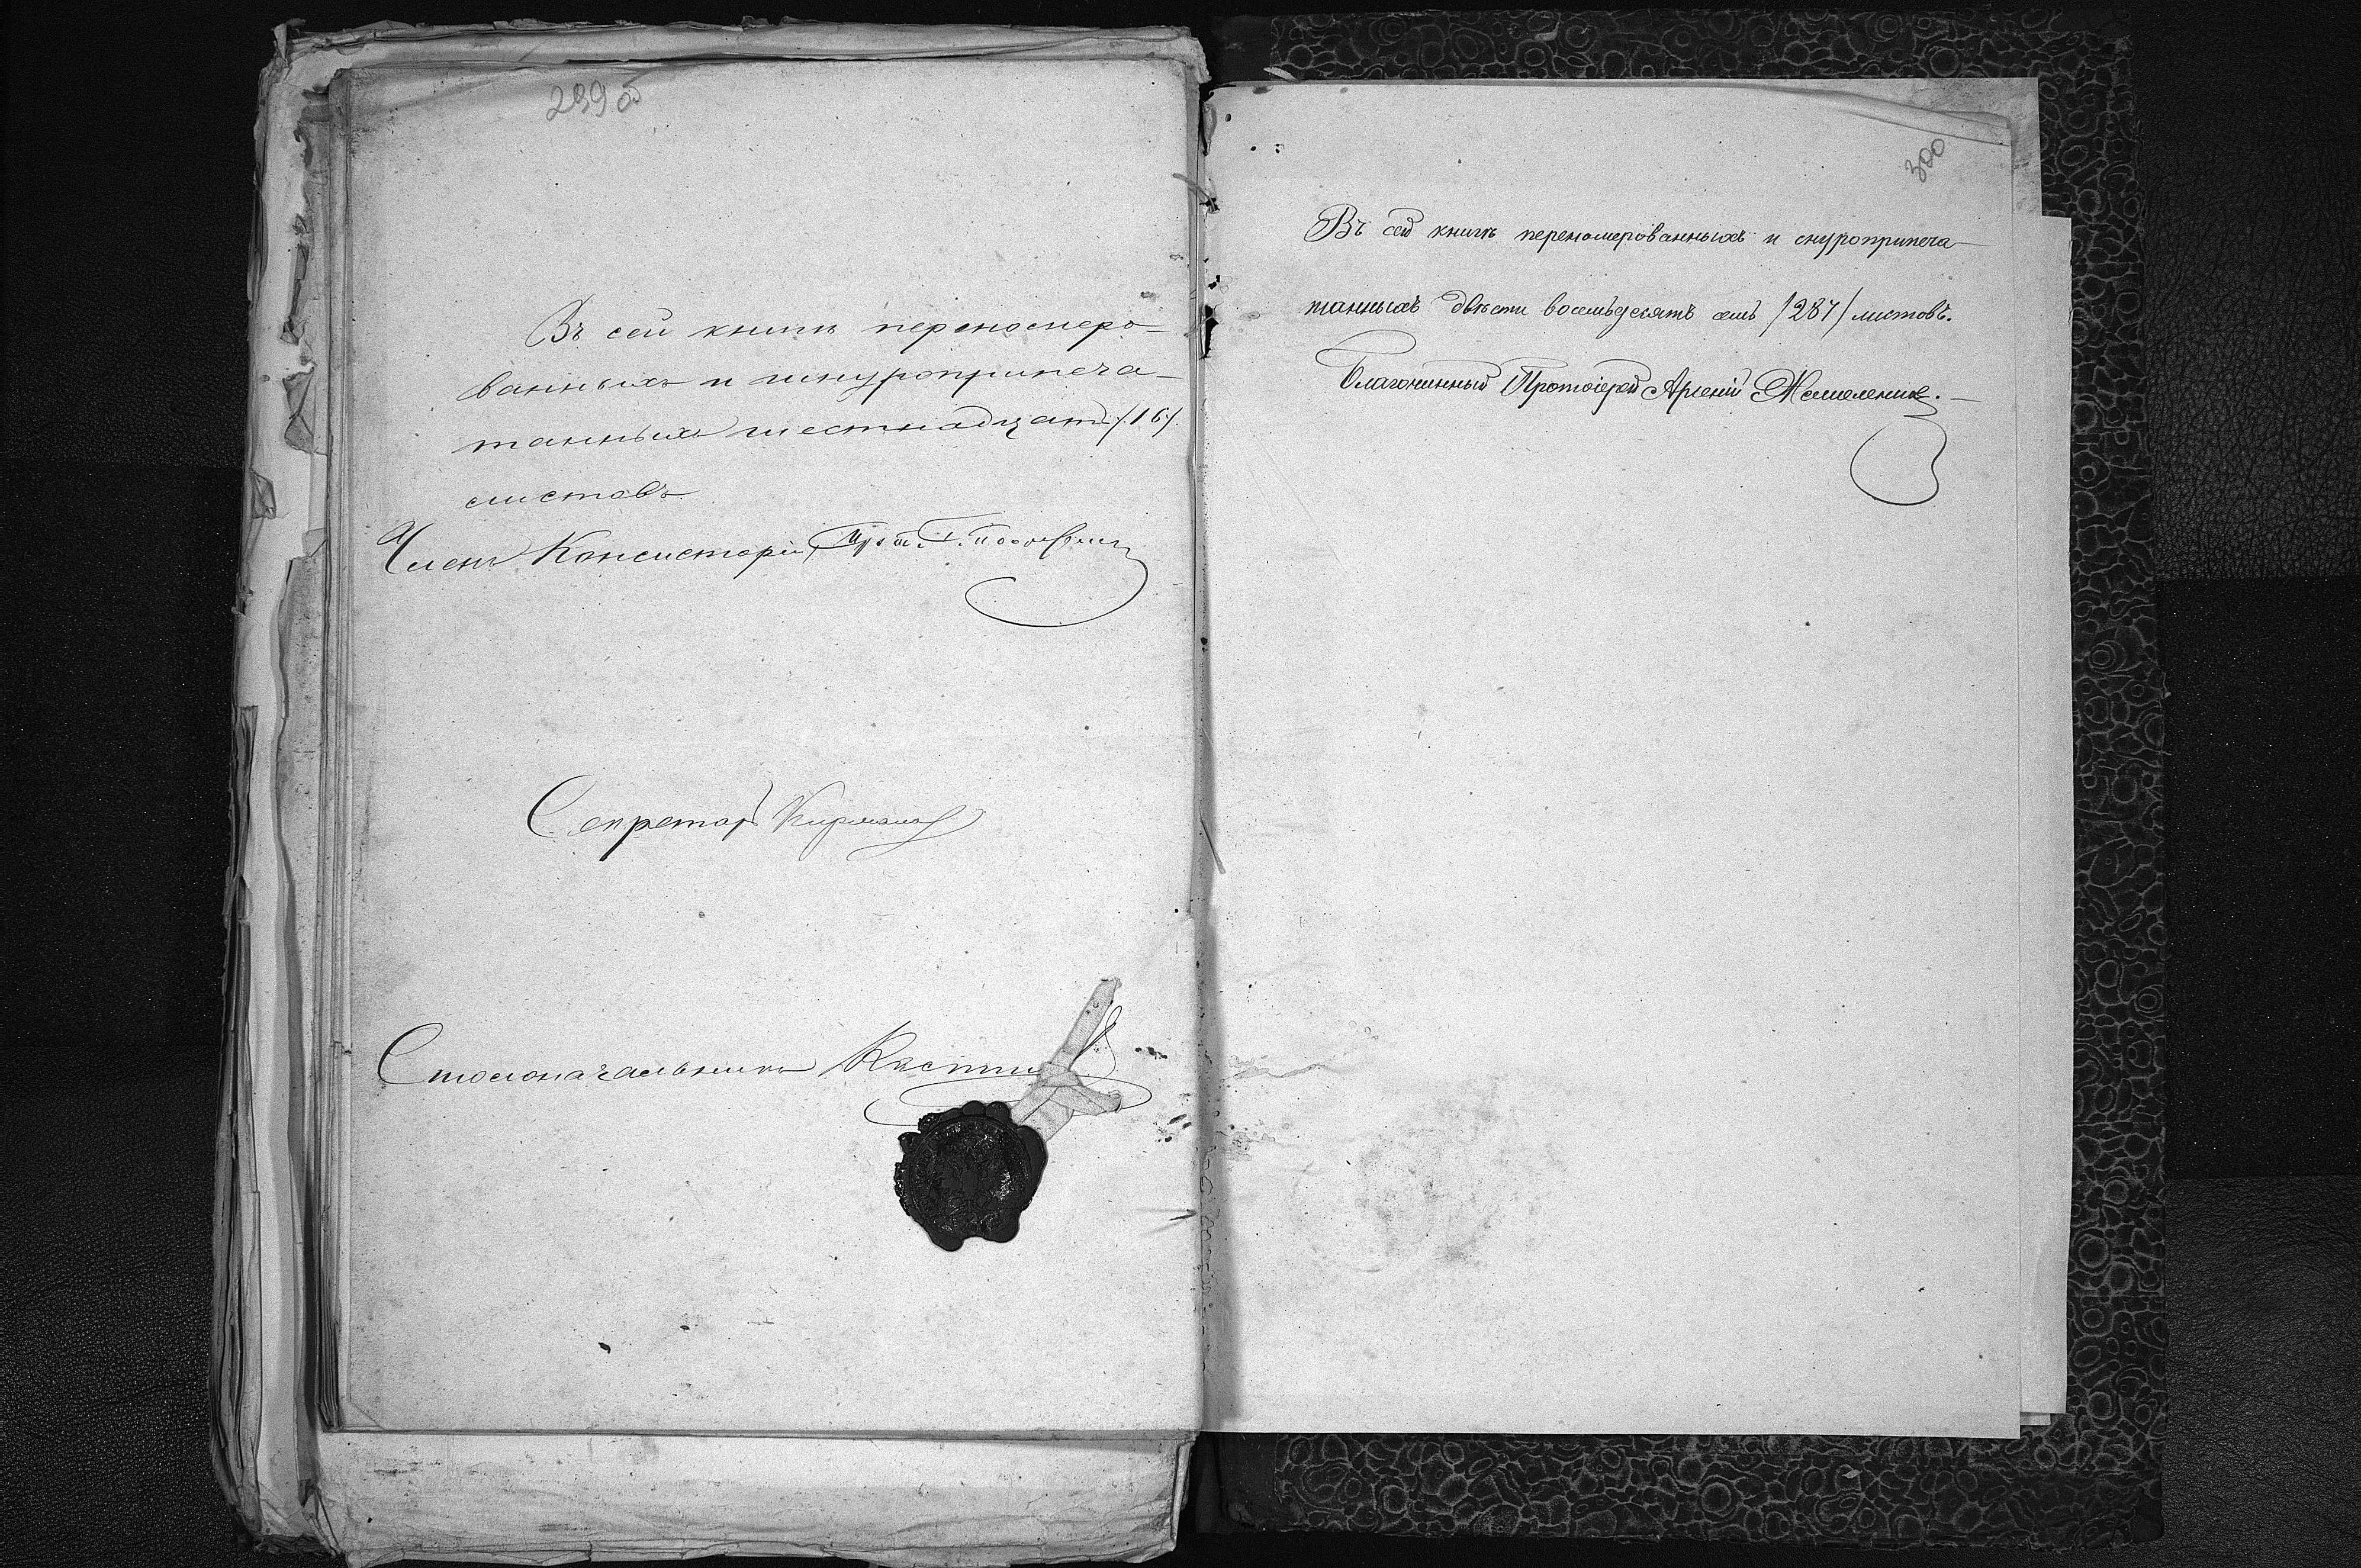 299 об
Въ сей книгѣ переномеро-
ванныхъ и шнуроприпеча-
танныхъ шестнадцать /16/.
листовъ
Членъ Консисторіи, Прот. Г.
Секретарь
Столоначальникъ
300
Въ сей книгѣ переномерованныхъ и снуроприпеча-
танныхъ двѣсти восемьдесятъ семь /287/ листовъ.
Благочинный Протоіерей Арсеній